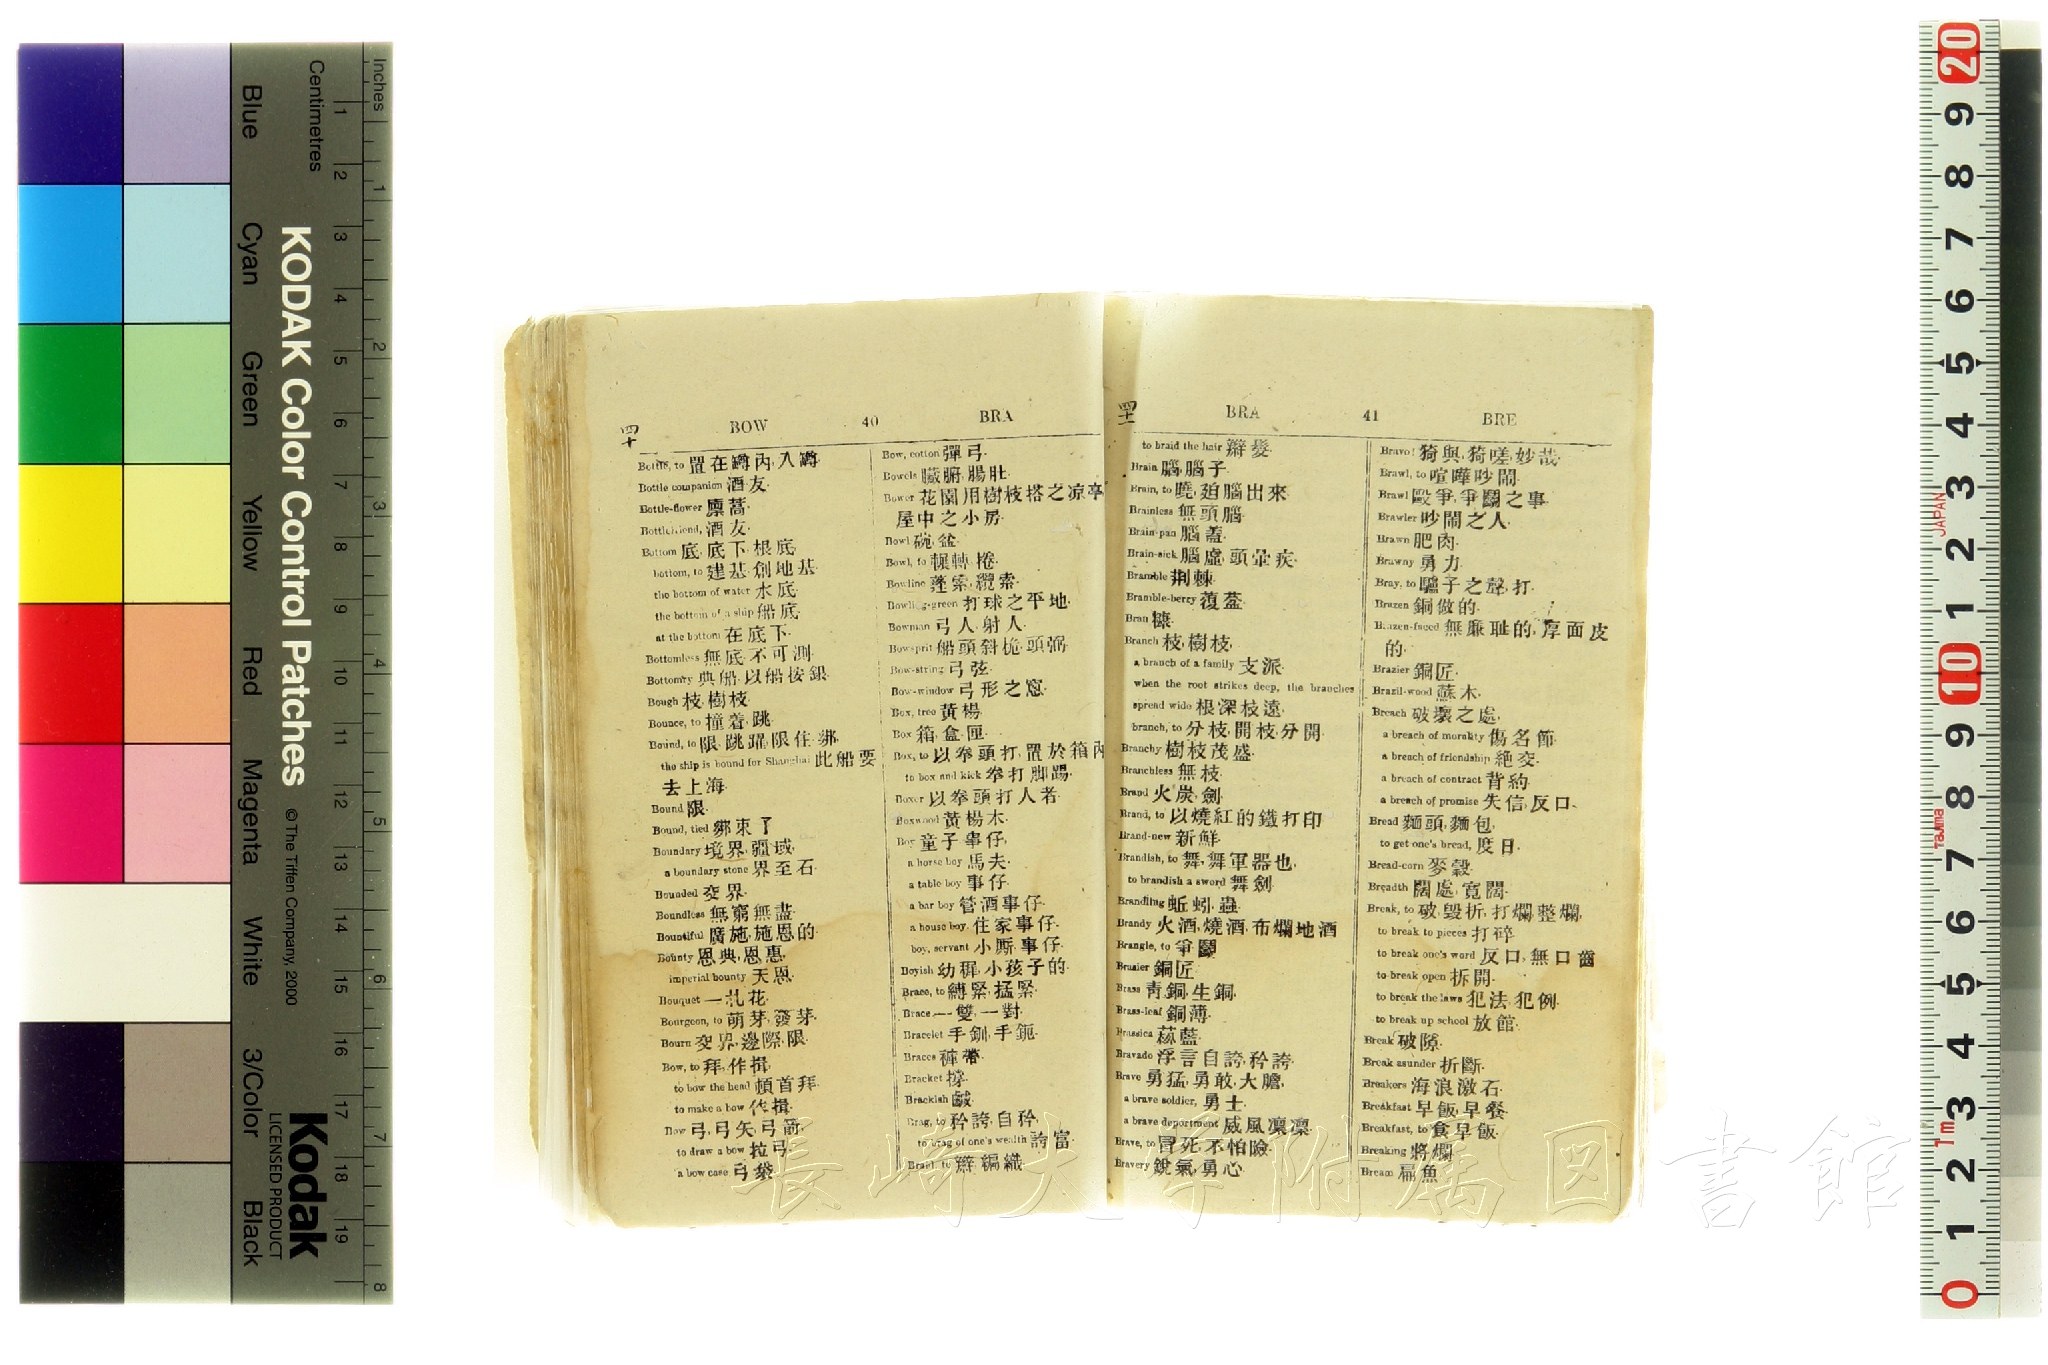 Inches
Centimetres
1 2 3 4 5 6 7 8 9 10 11 12 13 14 15 16 17 18 19
1 2 3 4 5 6 7 8
KODAK Color Control Patches
© The Tiffen Company, 2000
Kodak
LICENSED PRODUCT
Blue
Cyan
Green
Yellow
Red
Magenta
White
3/Color
Black
四十
BOW 40 BRA
Bottle, to 置在罇內,入罇.
Bottle companion 酒友.
Bottle-flower
Bottlefriend, 酒友.
Bottom 底,底下,根底.
bottom, to 建基,創地基.
the bottom of water 水底.
the bottom of a ship 船底.
at the bottom 在底下.
Bottomless 無底,不可測.
Bottomry 典船,以船按銀.
Bough 枝,樹枝.
Bounce, to 撞着,跳.
Bound, to 限,跳躍,限住,綁.
the ship is bound for Shanghai 此船要
去上海.
Bound 限.
Bound, tied 綁束了
Boundary 境界,疆域.
a boundary stone 界至石.
Bounded 交界.
Boundless 無窮無盡.
Bountiful 廣施,施恩的.
Bounty 恩典,恩惠.
imperial bounty 天恩.
Bouquet 一紮花.
Bourgeon, to 萌芽,發芽.
Bourn 交界,邊際,限.
Bow, to 拜,作揖.
to bow the head 頓首拜.
to make a bow 作揖.
Bow 弓,弓矢,弓箭.
to draw a bow 拉弓.
a bow case 弓袋.
Bow, cotton 彈弓.
Bowels 臟腑,腸肚.
Bower 花園用樹枝搭之凉亭
屋中之小房.
Bowl 碗,盆.
Bowl, to 輥轉,捲.
Bowline 蓬索,纜索.
Bowling-green 打球之平地.
Bowman 弓人,射人.
Bowsprit 船頭斜桅,頭弼.
Bow-string 弓弦.
Bow-window 弓形之窻.
Box, tree 黃楊.
Box 箱,盒,匣.
Box, to 以拳頭打,置於箱內
to box and kick 拳打脚踢.
Boxer 以拳頭打人者.
Boxwood 黃楊木.
Boy 童子,事仔.
a horse boy 馬夫.
a table boy 事仔.
a bar boy 管酒事仔.
a house boy, 住家事仔.
boy, servant 小厮,事仔.
Boyish 幼穉,小孩子的.
Brace, to 縛緊,猛緊.
Brace 一雙,一對.
Bracelet 手釧,手鈪.
Braces 褲帶.
Bracket 撑.
Brackish 鹹.
Brag, to 矜誇,自矜.
to brag of one's wealth 誇富.
Braid, to 辮,編,織.
四十一
BRA 41 BRE
to braid the hair 辮髮.
Brain 腦,腦子.
Brain, to 腦出來.
Brainless 無頭腦.
Brain-pan 腦蓋.
Brain-sick 腦虛,頭暈疾.
Bramble 荆棘.
Bramble-berry 覆葢.
Bran 糠.
Branch 枝,樹枝.
a branch of a family 支派.
when the root strikes deep, the branches
spread wide 根深枝遠.
branch, to 分枝,開枝,分開.
Branchy 樹枝茂盛.
Branchless 無枝.
Brand 火炭,劍.
Brand, to 以燒紅的鐵打印
Brand-new 新鮮.
Brandish, to 舞,舞軍器也.
to brandish a sword 舞劍.
Brandling 蚯蚓,蟲.
Brandy 火酒,燒酒,布爛地酒
Brangle, to 爭鬭.
Brasier 銅匠.
Brass 靑銅,生銅.
Brass-leaf 銅薄.
Brassica 菘藍.
Bravado 浮言自誇,矜誇.
Brave 勇猛,勇敢,大膽.
a brave soldier, 勇士.
a brave deportment 威風凜凜.
Brave, to 冒死,不怕險.
Bravery 銳氣,勇心.
Bravo! 猗與,猗嗟,妙哉.
Brawl, to 喧嘩,吵鬧.
Brawl 毆爭,爭鬭之事.
Brawler 吵鬧之人.
Brawn 肥肉.
Brawny 勇力.
Bray, to 驢子之聲,打.
Brazen 銅做的.
Brazen-faced 無廉耻的,厚面皮
的.
Brazier 銅匠.
Brazil-wood 蘇木.
Breach 破壞之處.
a breach of morality 傷名節.
a breach of friendship 絶交.
a breach of contract 背約.
a breach of promise 失信,反口.
Bread 麵頭,麵包.
to get one's bread, 度日.
Bread-corn 麥穀.
Breadth 闊處,寬闊.
Break, to 破,毀折,打爛,整爛.
to break to pieces 打碎.
to break one's word 反口,無口齒
to break open 拆開.
to break the laws 犯法,犯例.
to break up school 放館.
Break 破隙.
Break asunder 折斷.
Breakers 海浪激石.
Breakfast 早飯,早餐.
Breakfast, to 食早飯.
Breaking 將爛.
Bream 扁魚.
長崎大学附属図書館
20 9 8 7 6 5 4 3 2 1 10 9 8 7 6 5 4 3 2 1 0
JAPAN
Tajima
1m